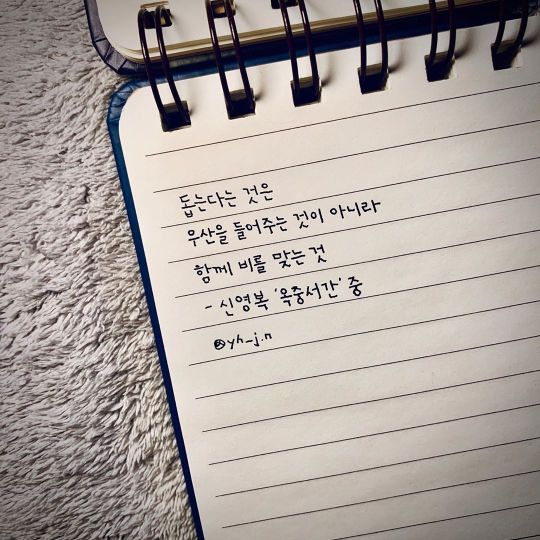 돕는다는 것은
우산을 들어주는 것이 아니라
함께 비를 맞는 것
- 신영복 '옥중서간' 중
@yh_j.n